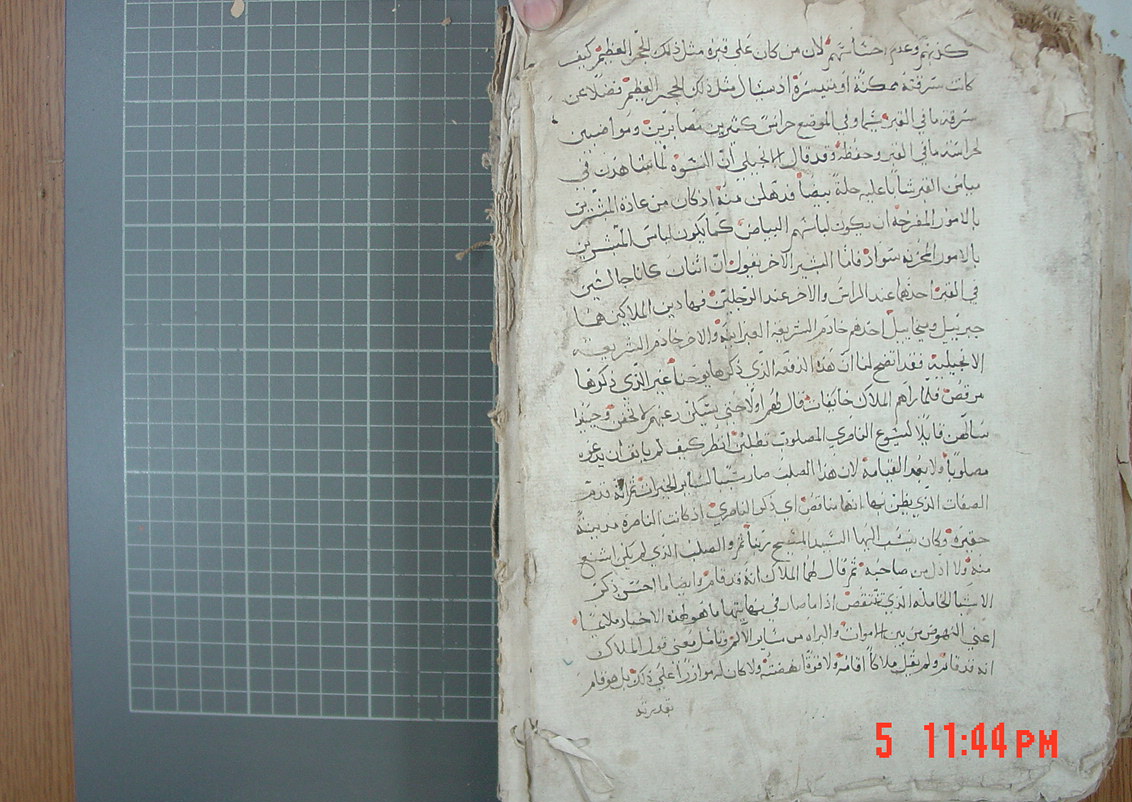 كذبهم وعدم احتشامهم لان من كان على قبره مثل ذلك الحجر العظيم كيف
كانت سرقته ممكنة او متيسرة اذ سبال مثل ذلك الحجر العظيم فضلا عن
سرقة ما في القبر سيما وفي الموضع حراس كثيرين مصابرين ومواضبين
لحراسة ما في القبر وحفظه وقد قال الانجيلي ان النسوة لما شاهدن في
ميامن القبر شابا عليه حلة بيضا فدهلن منه اذ كان من عادة المبشرين
بالامور المفرحة ان يكون لباسهم البياض كما يكون لباس المبشرين
بالامور المحزنه سواد فاما البشير الاخر يقول ان اثنان كانا جالسين
في القبر احدهما عند الراس والاخر عند الرجلين فهادين الملاكين هما
جبرييل وميخاييل احدهم خادم الشريعه العبرانية والاخر خادم الشريعة
الانجيلية فقد اتضح لنا ان هذه الدفعه الذي ذكرها يوحنا غير الذي ذكرها
مرقص فلما راهم الملاك خايفات قال لهم اولا حتى يسكن رعبهم لا تخفن وحينيذا
سالهن قايلا ليسوع الناصري المصلوب تطلبن انظر كيف لم يانف ان يدعوه
مصلوبا ولا بعد القيامة لان هذا الصلب صار سببا لساير الخيرات ثم انه قدم
الصفات الذي يظن بها انها مناقص اي ذكر الناصري اذ كانت الناصرة مدينة
حقيرة وكان ينسب اليها السيد المسيح ربنا ثم والصلب الذي لم يكن اشنع
منه ولا اذل من صاحبه ثم قال لهما الملاك انه قد قام وايضا ما احسن ذكر
الاشيا الخامله الذي تنتقص اذا ما صار في نهايتها ما هو لهذه الاخبار ملايما
اعني النهوض من بين الاموات والبراه من ساير الالم وتامل معنى قول الملاك
انه قد قام ولم يقيل ملاكا اقامه ولا قوة انهضته ولا كان له موازرا على ذلك بل هو قام
بقدرته
5 11:44 PM